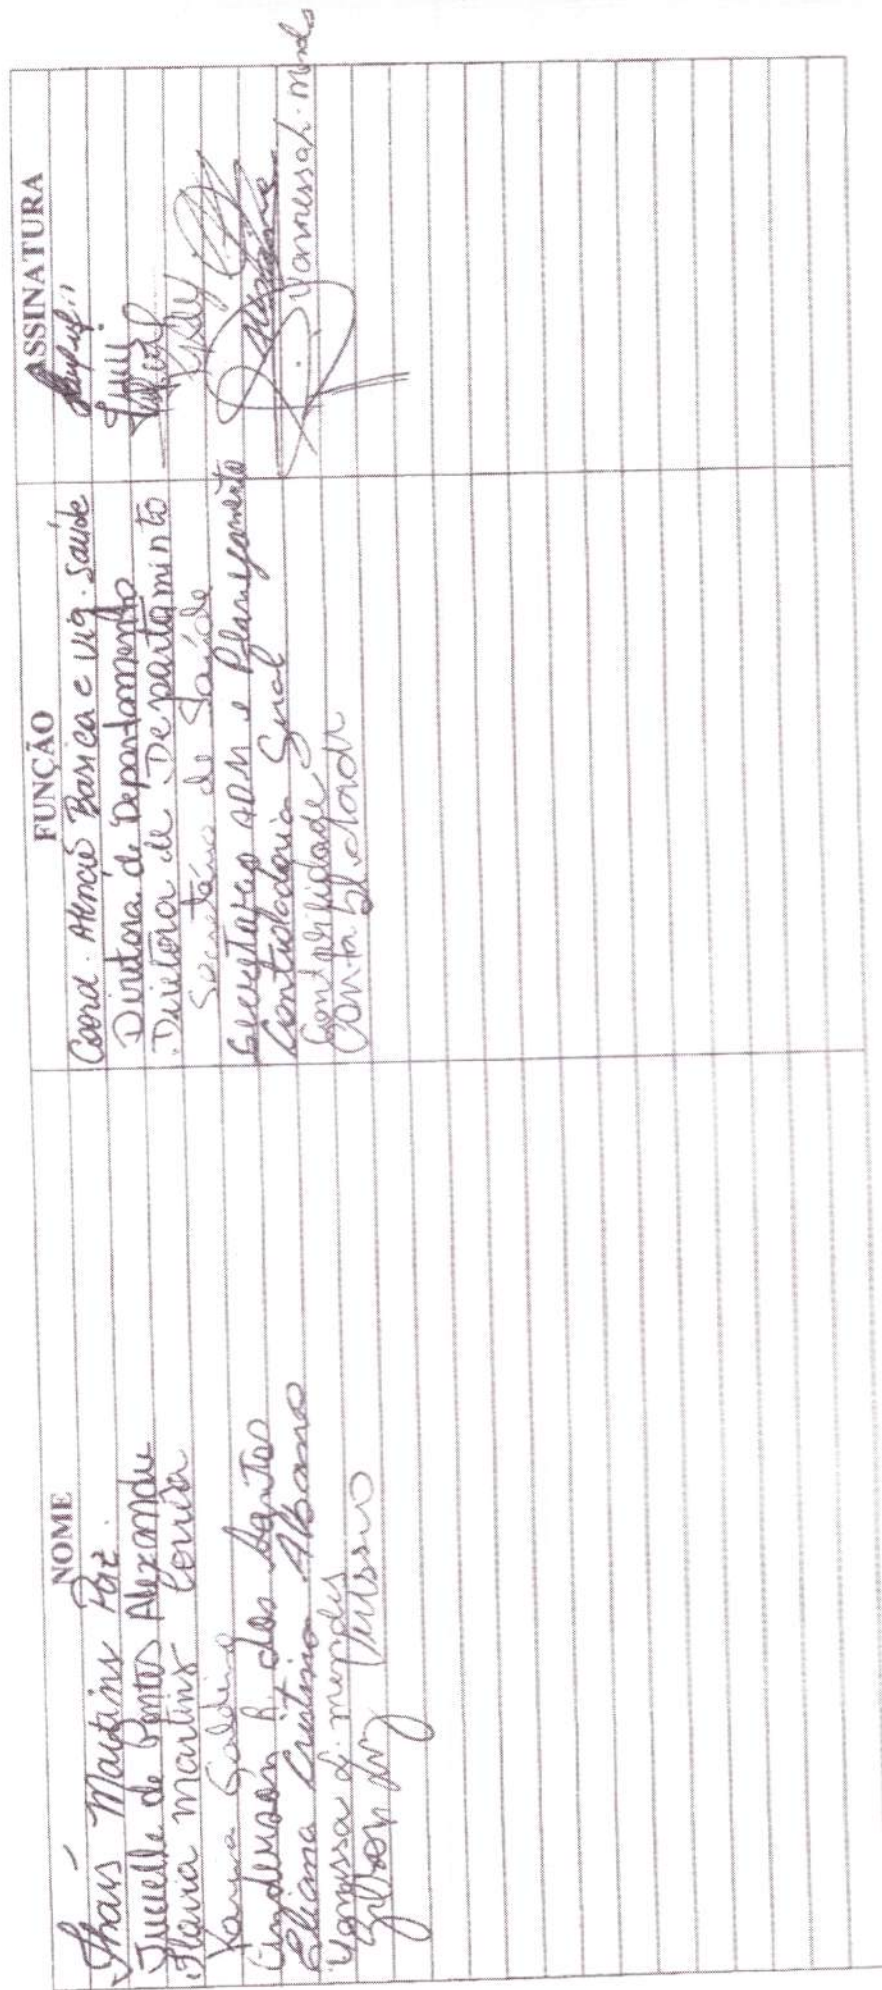 NOME FUNÇÃO ASSINATURA
Thaís Martins Paz. Coord. Atenção Basica e vig. Saúde
de Pontes Alexandre Diretora de Departamento
Flavia Martins Corrêa Diretora de Departamento
Galdino Secretária de Saúde
Anderson R. dos Santos Secretario ADM e Planejamento
Eliana Cristina Albano Controladoria Geral
Vanessa L. Mendes Contabilidade Vanessa L. Mendes
Gilson Contabilidade